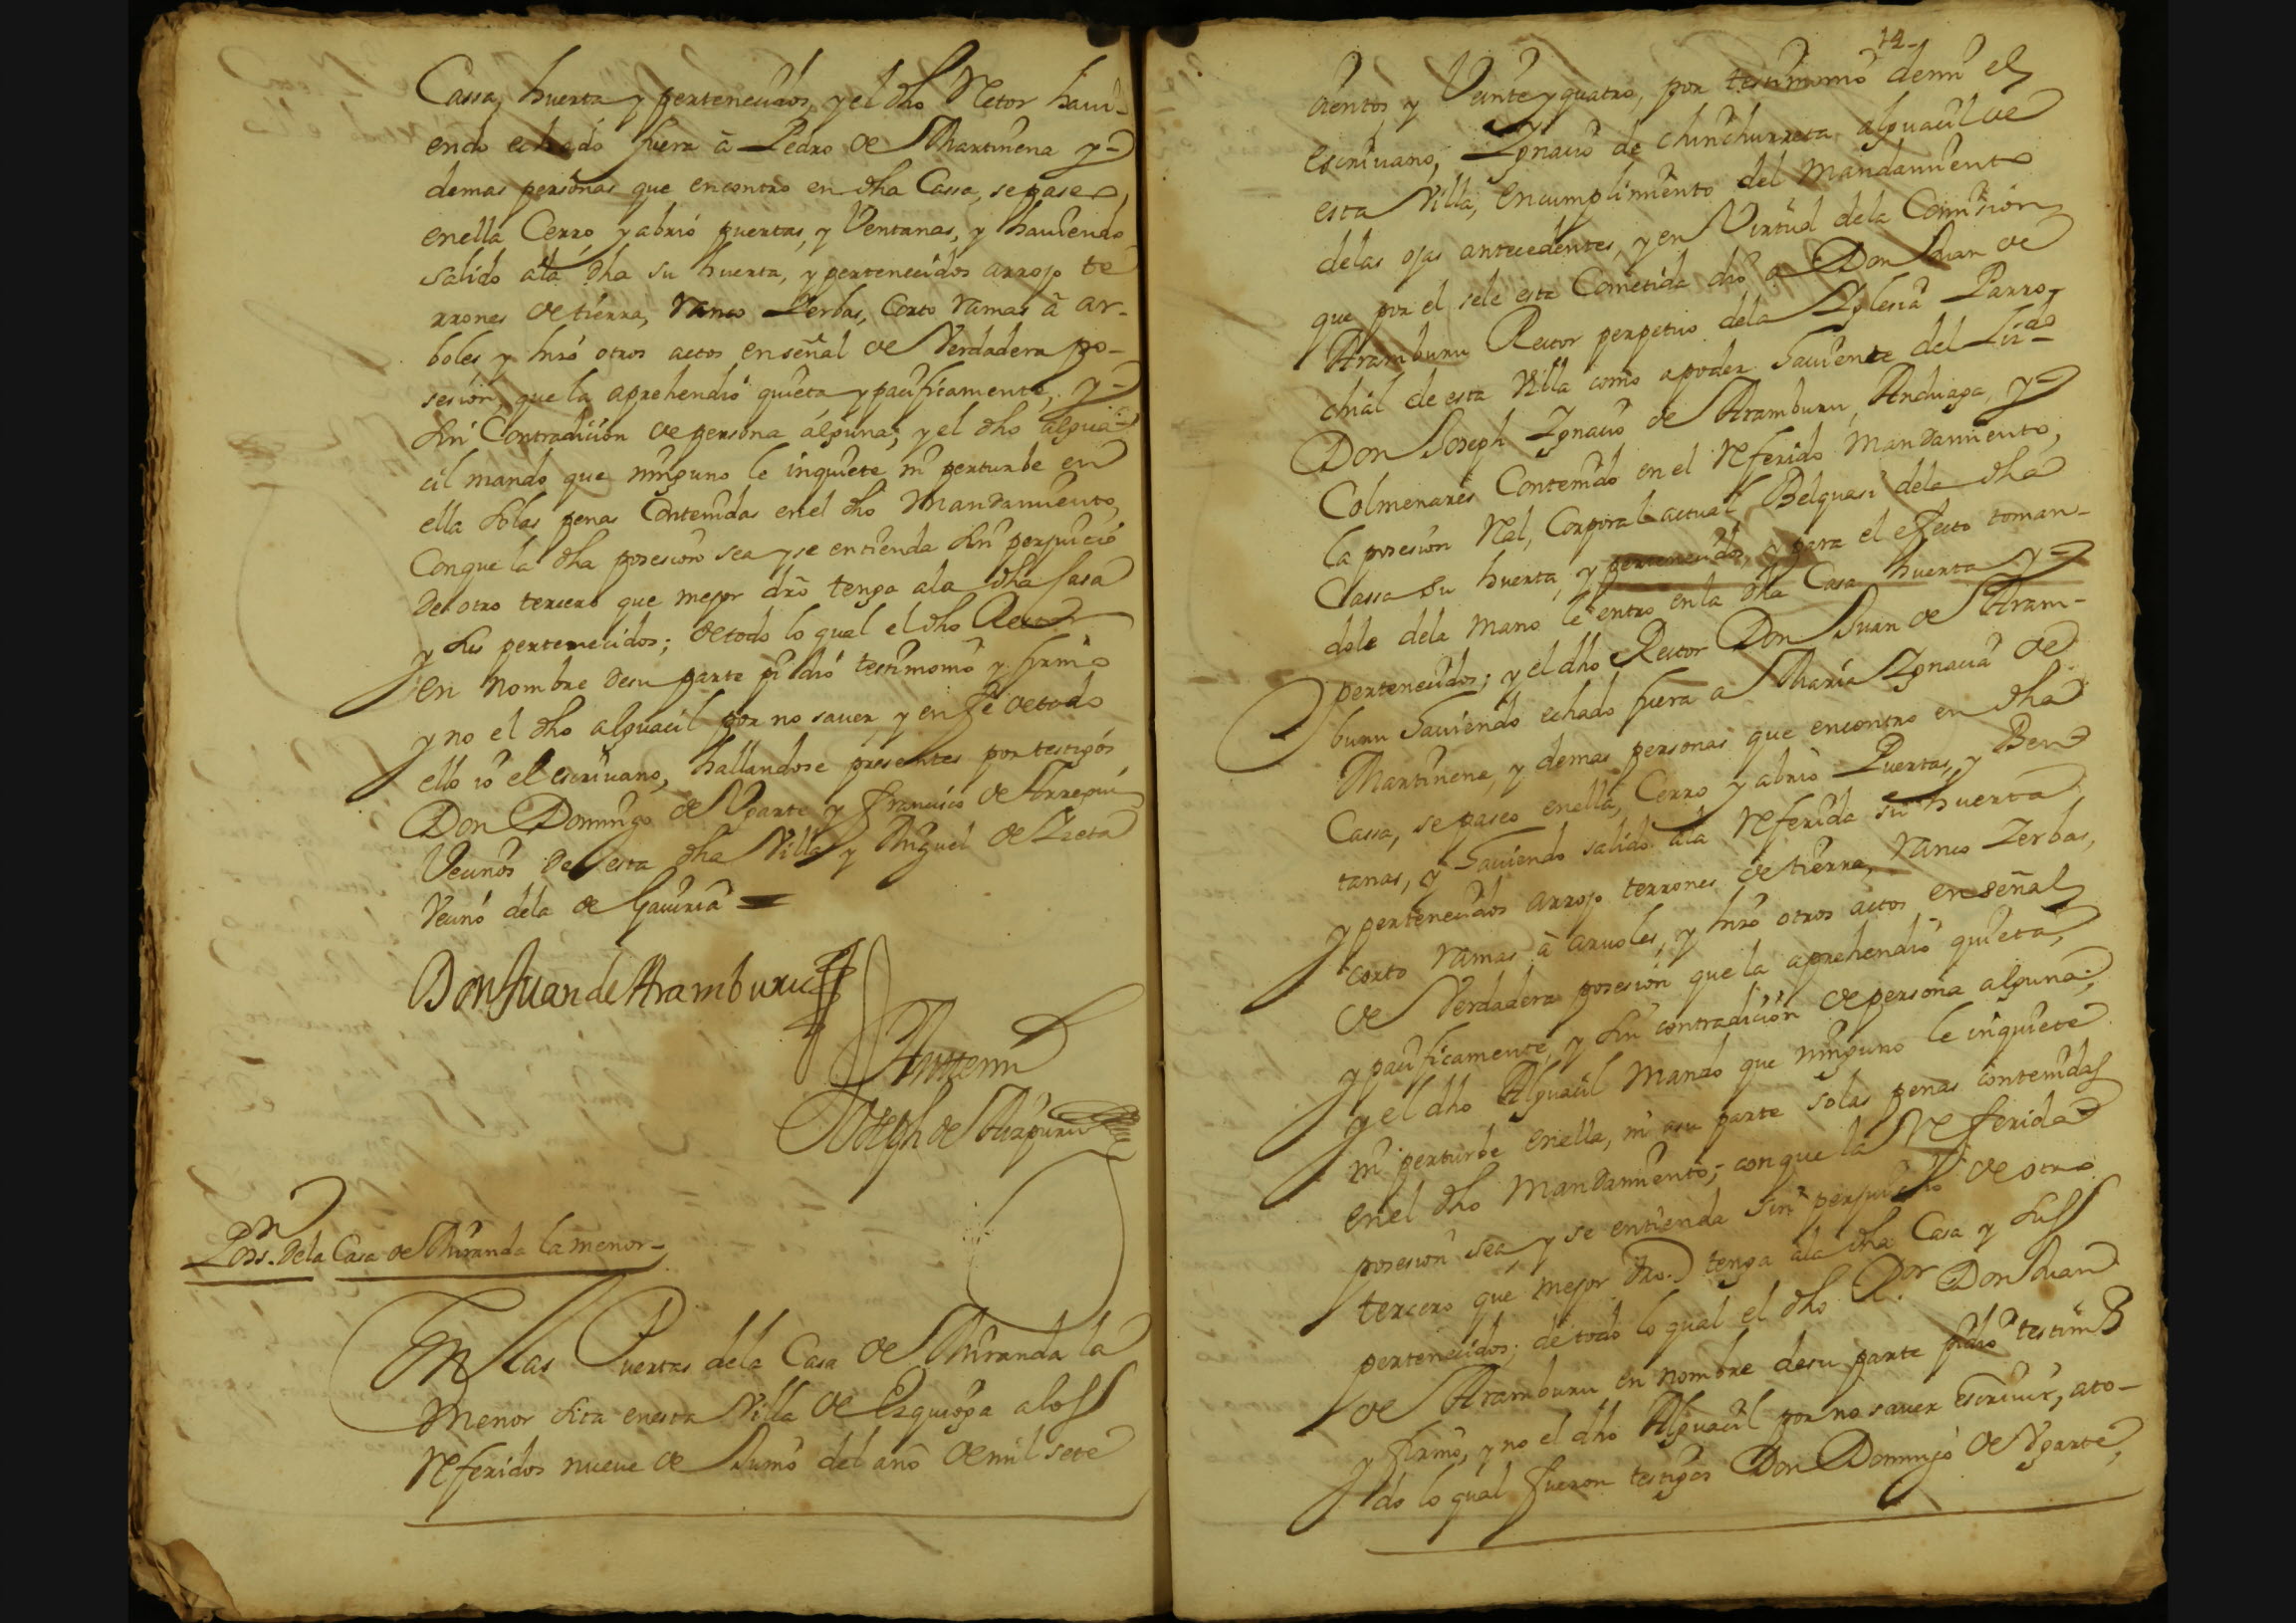 Cassa, huerta y pertenecidos, y el dho Retor havi-
endo echado fuera â Pedro de Martinena y
demas personas que encontro en dha Cassa, se paseo
en ella Cerro y abrio puertas, y Ventanas, y haviendo
salido ala dha su huerta, y pertenecidos arrojo te
rrones de tierra, ranco Yerbas, Corto ramas â ar-
boles y hizo otros actos en señal de Verdadera po-
sesion, que la aprehendio quieta y pacificamente, y
sin Contradicion de persona alguna; y el dho algua-
cil mando que ninguno le inquiete ni perturbe en
ella solas penas Contenidas en el dho Mandamiento,
Con que la dha posesion sea y se entienda sin perjuicio
de otro tercero que mejor dro tenga ala dha Casa
y sus pertenecidos; de todo lo qual el dho Rector
en nombre de su parte pidio testimonio y firmo
y no el dho alguacil por no saver, y en fe de todo
ello io el escrivano, hallandose presentes por testigos
Don Domingo de Ugarte y Francisco de Arregui
Vecinos de esta dha Villa y Miguel de
Vecino dela de Gaviria =
Don Juan de Aramburu
Ante mi
Joseph de
Poss.on dela Casa de Miranda la menor
En las Puertas dela Casa de Miranda la
Menor sita en esta Villa de Ezquioga alos
referidos nueve de Junio del año de mil sete
14
cientos y Veinte y quatro, por testimonio de mi el
escrivano, Ygnacio de Chinchurreta alguacil de
esta Villa, en cumplimiento del Mandamiento
delas ojas antecedentes, y en Virtud dela Comision
que por el sele esta Cometida dio a Don Juan de
Aramburu Rector perpetuo dela Yglesia Parro-
chial de esta Villa como apoder haviente del Liz.do
Don Joseph Ygnacio de Aramburu, Anduaga, y
Colmenares Contenido en el referido Mandamiento,
la posesion Real, Corporal actual, Belquasi dela dha
Cassa su huerta, y pertenecidos, y para el efecto toman-
dole dela mano le entro en la dha Casa huerta y
pertenecidos; y el dho Rector Don Juan de Aram-
buru haviendo echado fuera a Maria Ygnacia de
Martinena, y demas personas que encontro en dha
Cassa, se paseo en ella, Cerro y abrio Puertas, y Ben
tanas, y haviendo salido ala referida su huerta
y pertenecidos arrojo terrones de tierra, ranco Zerbas,
corto ramas â arvoles, y hizo otros actos en señal
de Verdadera posesion que la aprehendio quieta,
y pacificamente, y sin contradicion de persona alguna;
y el dho Alguacil Mando que ninguno le inquiete
ni perturbe en ella, ni asu parte solas penas contenidas
en el dho Mandamiento; con que la Referida
posesion sea, y se entienda sin perjuicio de otro
tercero que mejor dro. tenga ala dha Casa y sus
pertenecidos; de todo lo qual el dho R.or Don Juan
de Aramburu en nombre de su parte pidio testim
y firmo, y no el dho Alguacil por no saver escrivir, ato-
do lo qual fueron testigos Don Domingo de Ugarte,